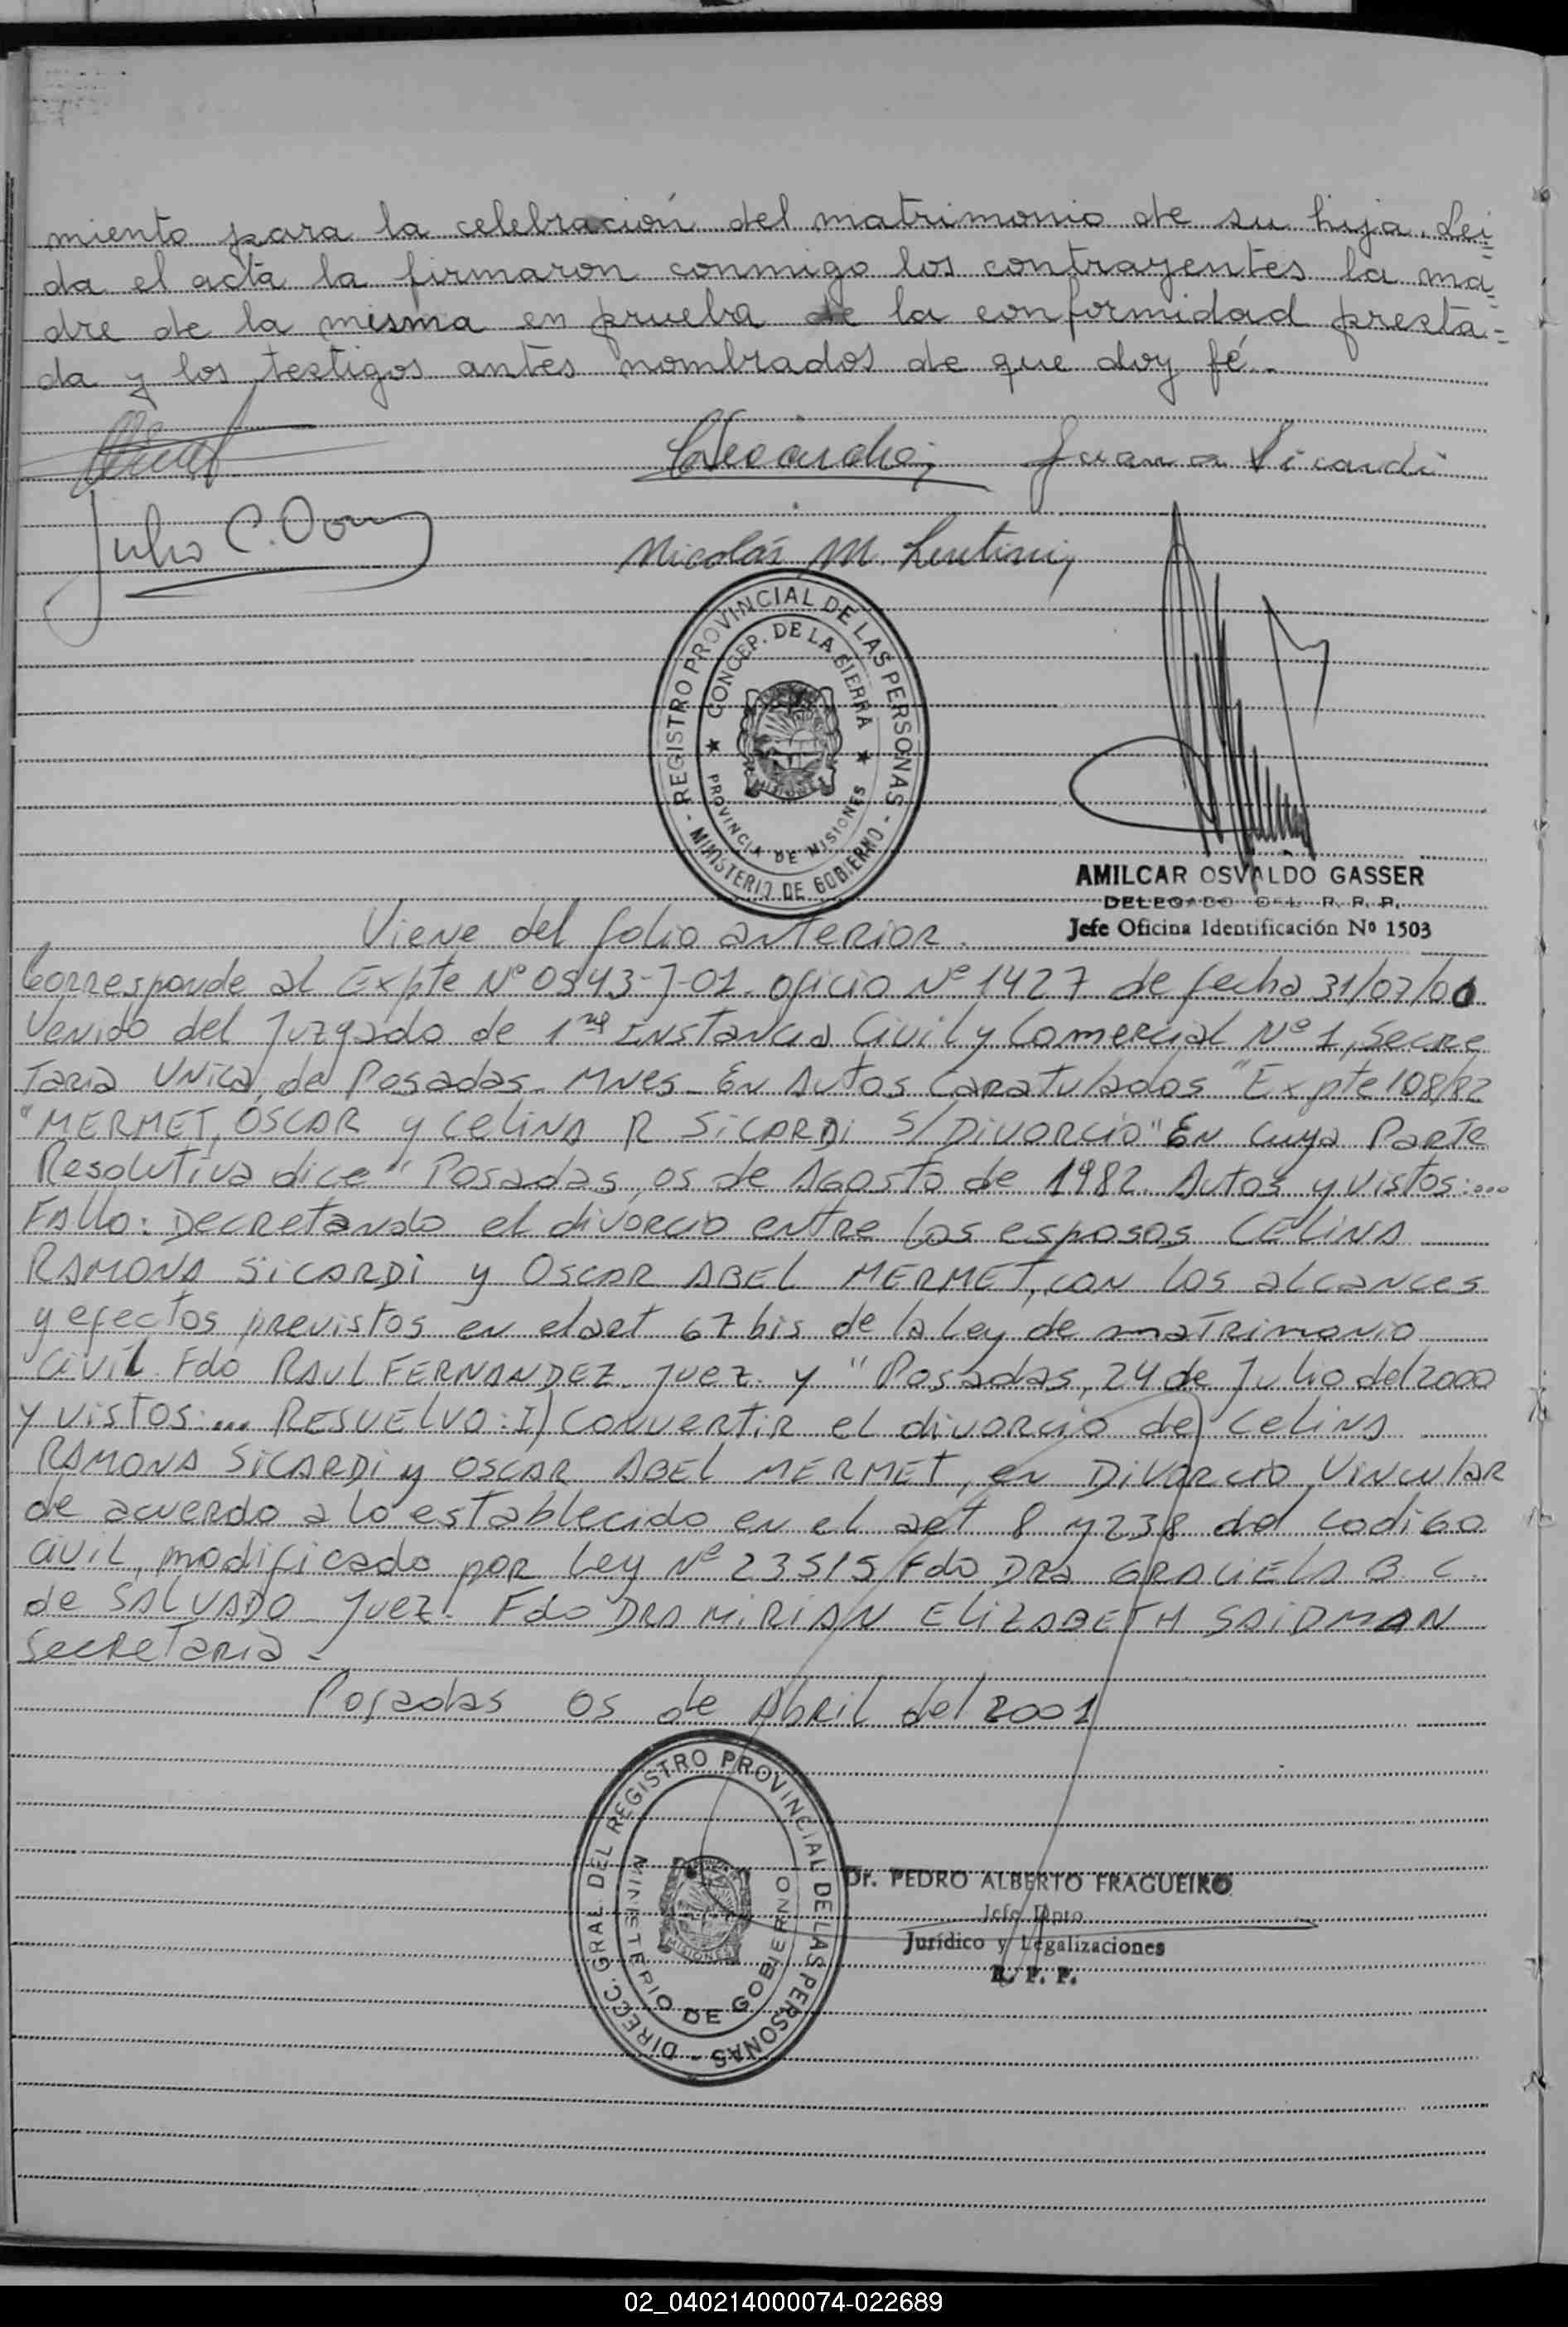 miento para la celebración del matrimonio de su hija. Lei=
da el acta la firmaron conmigo los contrayentes la ma=
dre de la misma en prueba de la conformidad presta=
da y los testigos antes nombrados de que doy fé.-
Juana Sicardi
Julio C.
Nicolás M. Lentini
REGISTRO PROVINCIAL DE LAS PERSONAS
- MINISTERIO DE GOBIERNO -
★ CONCEP. DE LA SIERRA ★
PROVINCIA DE MISIONES
MISIONES
AMILCAR OSVALDO GASSER
DELEGADO DEL R. P. P.
Jefe Oficina Identificación Nº 1503
Viene del folio anterior.
Corresponde al Expte Nº 0943-J-01. oficio Nº 1427 de fecha 31/07/00
Venido del Juzgado de 1ra Instancia Civil y Comercial Nº 1, Secre
Taria Unica, de Posadas - Mnes - En Autos Caratulados "Expte 108/82
"MERMET, OSCAR y Celina R SiCARDi S/DIVORCIO" En cuya Parte
Resolutiva dice "Posadas, 05 de Agosto de 1982. Autos y vistos:...
FAllo: Decretando el divorcio entre los esposos CELINA
RAMONA SiCARDi y OSCAR ABEL MERMET, con los alcances
y efectos previstos en el art 67 bis de la Ley de matrimonio
Civil. Fdo RAUL FERNANDEZ. Juez. y "Posadas, 24 de Julio del 2000
y vistos:... RESUELVO: I) Convertir el divorcio de Celina
RAMONA SiCARDi y OSCAR ABEL MERMET, en Divorcio Vincular
de acuerdo a lo establecido en el art 8 y 238 del codigo
civil, modificado por Ley Nº 23515 Fdo Dra GRACIELA B. C.
de SALVADO - Juez. Fdo DRA MiRIAN ELIZABETH SAIDMAN
Secretaria -
Posadas 05 de Abril del 2001
DIRECC. GRAL. DEL REGISTRO PROVINCIAL DE LAS PERSONAS -
MINISTERIO DE GOBIERNO
MISIONES
Dr. PEDRO ALBERTO FRAGUEIRO
Jefe Dpto
Jurídico y Legalizaciones
R. P. P.
02_040214000074-022689